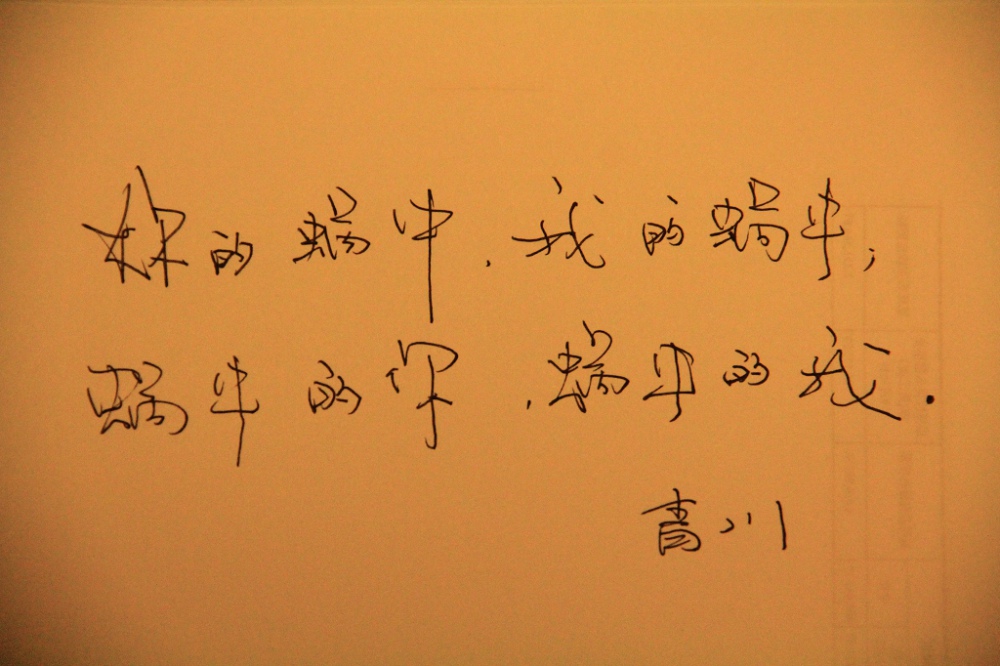 你的蜗牛，我的蜗牛；
蜗牛的你，蜗牛的我.
青川